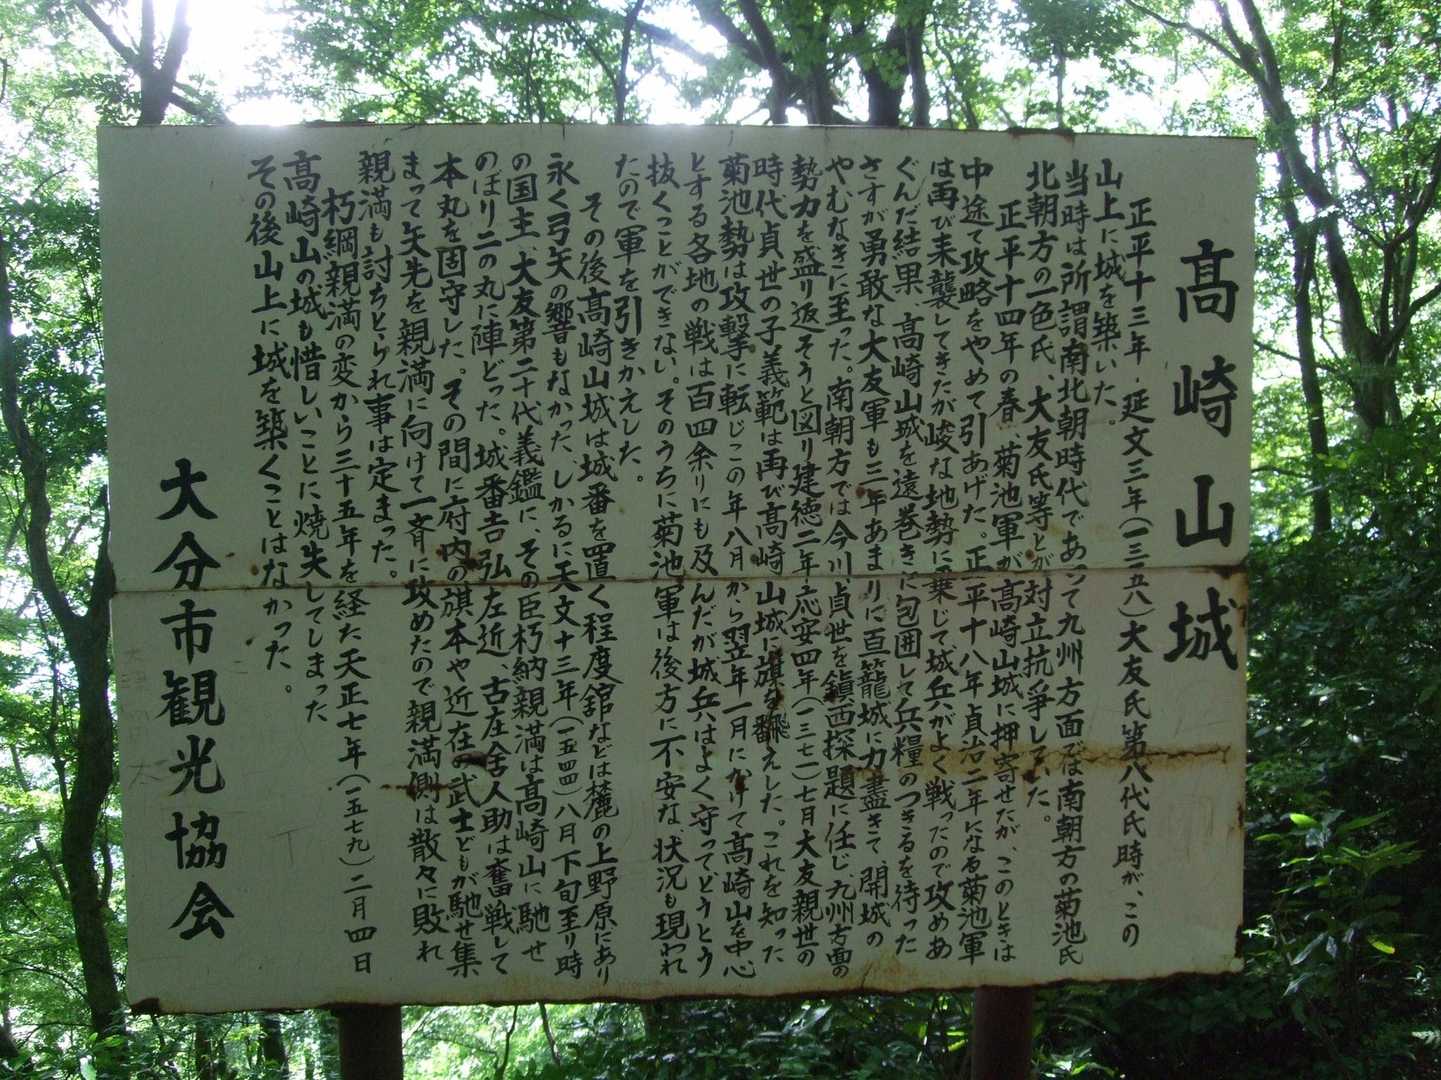 高崎山城
正平十三年・延文三年(一三五八)大友氏第八代氏時が、この
山上に城を築いた。
当時は所謂南北朝時代であって九州方面では南朝方の菊池氏
北朝方の一色氏 大友氏等とが対立抗争していた。
正平十四年の春、菊池軍が高崎山城に押寄せたが、このときは
中途で攻略をやめて引あげた。正平十八年貞治二年になる菊池軍
は再び来襲してきたが峻な地勢に乗じて城兵がよく戦ったので攻めあ
ぐんだ結果、高崎山城を遠巻きに包囲して兵糧のつきるを待った
さすが勇敢な大友軍も三年あまりに亘籠城に力盡きて、開城の
やむなきに至った。南朝方では今川貞世を鎮西探題に任じ、九州方面の
勢力を盛り返そうと図り建徳二年・応安四年(一三七一)七月大友親世の
時代貞世の子義範は再び高崎山城に旗を飜えした。これを知った
菊池勢は攻撃に転じこの年八月から翌年一月にかけて高崎山を中心
とする各地の戦は百四余りにも及んだが城兵はよく守ってとうとう
抜くことができない。そのうちに菊池軍は後方に不安な、状況も現われ
たので軍を引きかえした。
その後高崎山城は城番を置く程度舘などは麓の上野原にあり
永く弓矢の響もなかった、しかるに天文十三年(一五四四)八月下旬至り時
の国主、大友第二十代義鑑に、その臣朽納親満は高崎山に馳せ
のぼり二の丸に陣どった。城番吉弘左近、古庄舎人助は奮戦して
本丸を固守した。その間に府内の旗本や近在の武士どもが馳せ集
まって矢先を親満に向けて一斉に攻めたので親満側は散々に敗れ
親満も討ちとられ事は定まった。
朽綱親満の変から三十五年を経た天正七年(一五七九)二月四日
高崎山の城も惜しいことに焼失してしまった
その後山上に城を築くことはなかった。
大分市観光協会